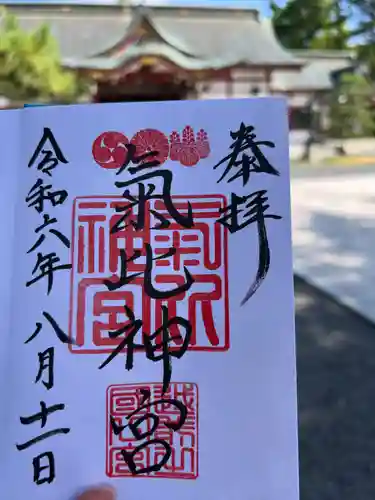 奉拝
氣比神宮
氣比神宮
越前國
令和六年八月十一日